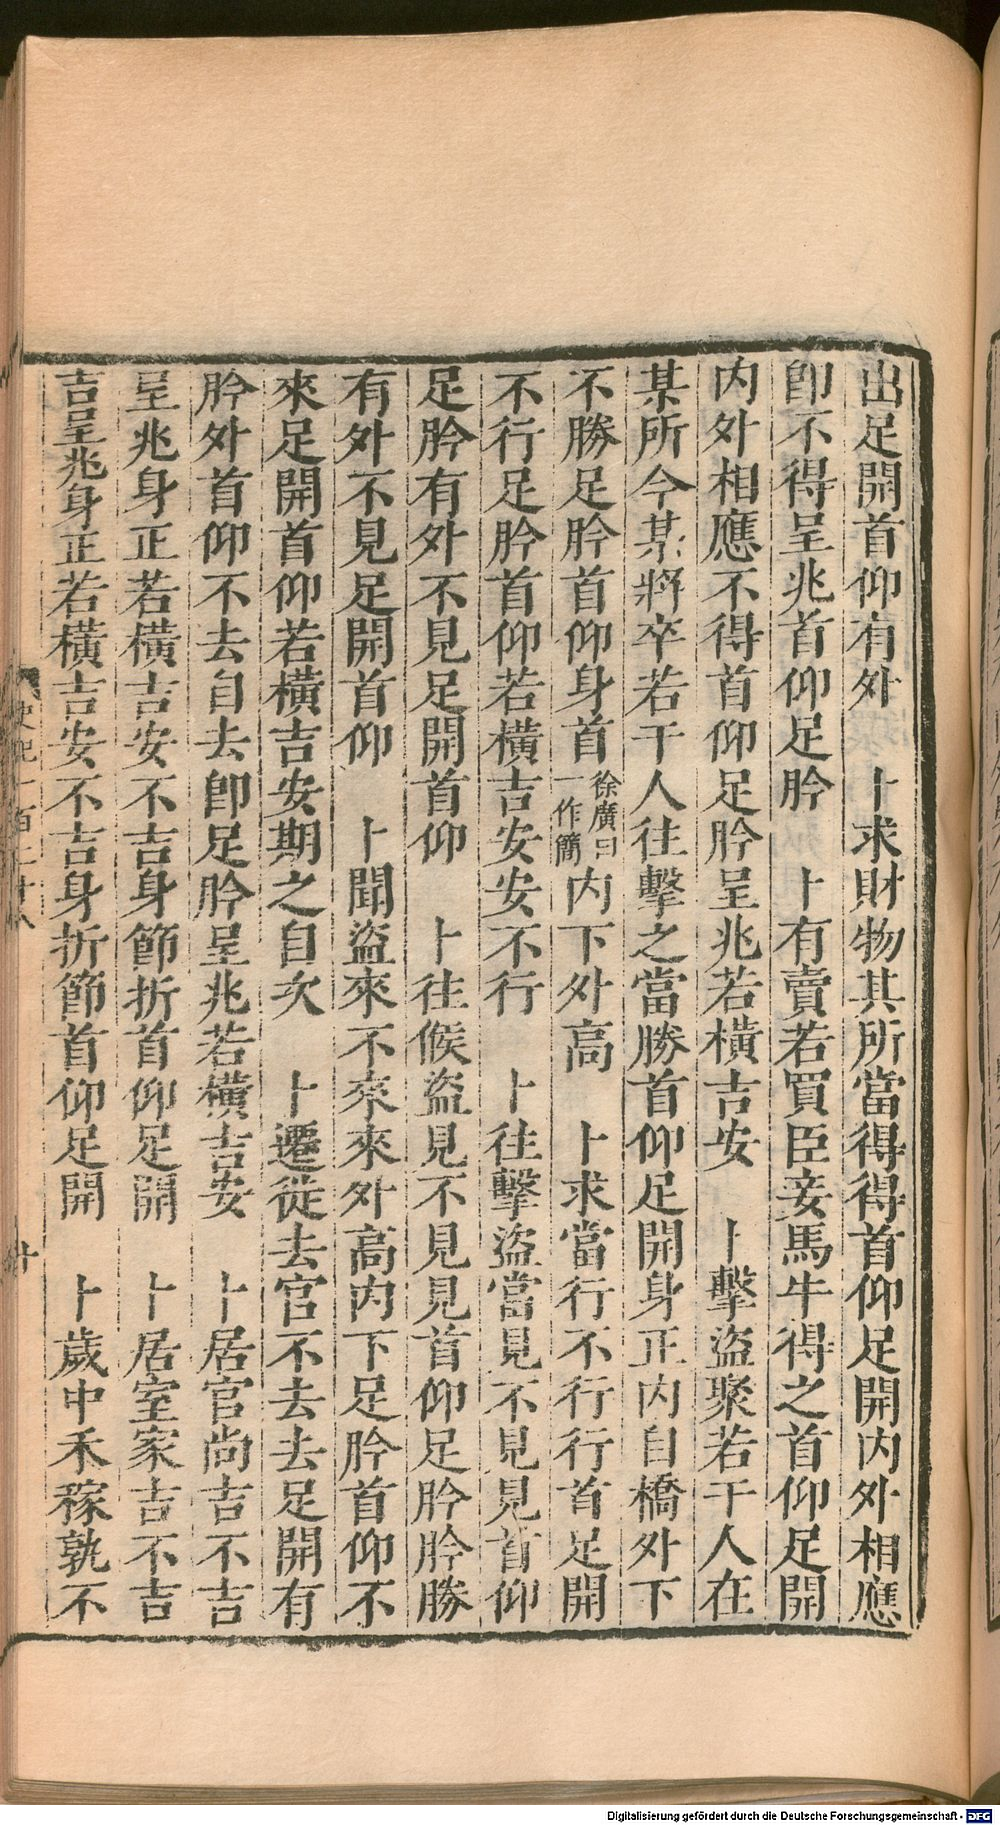 出足開首仰有外　卜求財物其所當得得首仰足開內外相應
卽不得呈兆首仰足肣　卜有賣若買臣妾馬牛得之首仰足開
內外相應不得首仰足肣呈兆若橫吉安　卜擊盜聚若干人在
某所今某將卒若干人往擊之當勝首仰足開身正內自橋外下
不勝足肣首仰身首徐廣曰一作簡內下外高　卜求當行不行行首足開
不行足肣首仰若橫吉安安不行　卜往擊盜當見不見見首仰
足肣有外不見足開首仰　卜往候盜見不見見首仰足肣肣勝
有外不見足開首仰　卜聞盜來不來來外高內下足肣首仰不
來足開首仰若橫吉安期之自次　卜遷徙去官不去去足開有
肣外首仰不去自去卽足肣呈兆若橫吉安　卜居官尚吉不吉
呈兆身正若橫吉安不吉身節折首仰足開　卜居室家吉不吉
吉呈兆身正若橫吉安不吉身折節首仰足開　卜歲中禾稼孰不
史記一百二十八
十
Digitalisierung gefördert durch die Deutsche Forschungsgemeinschaft - DFG